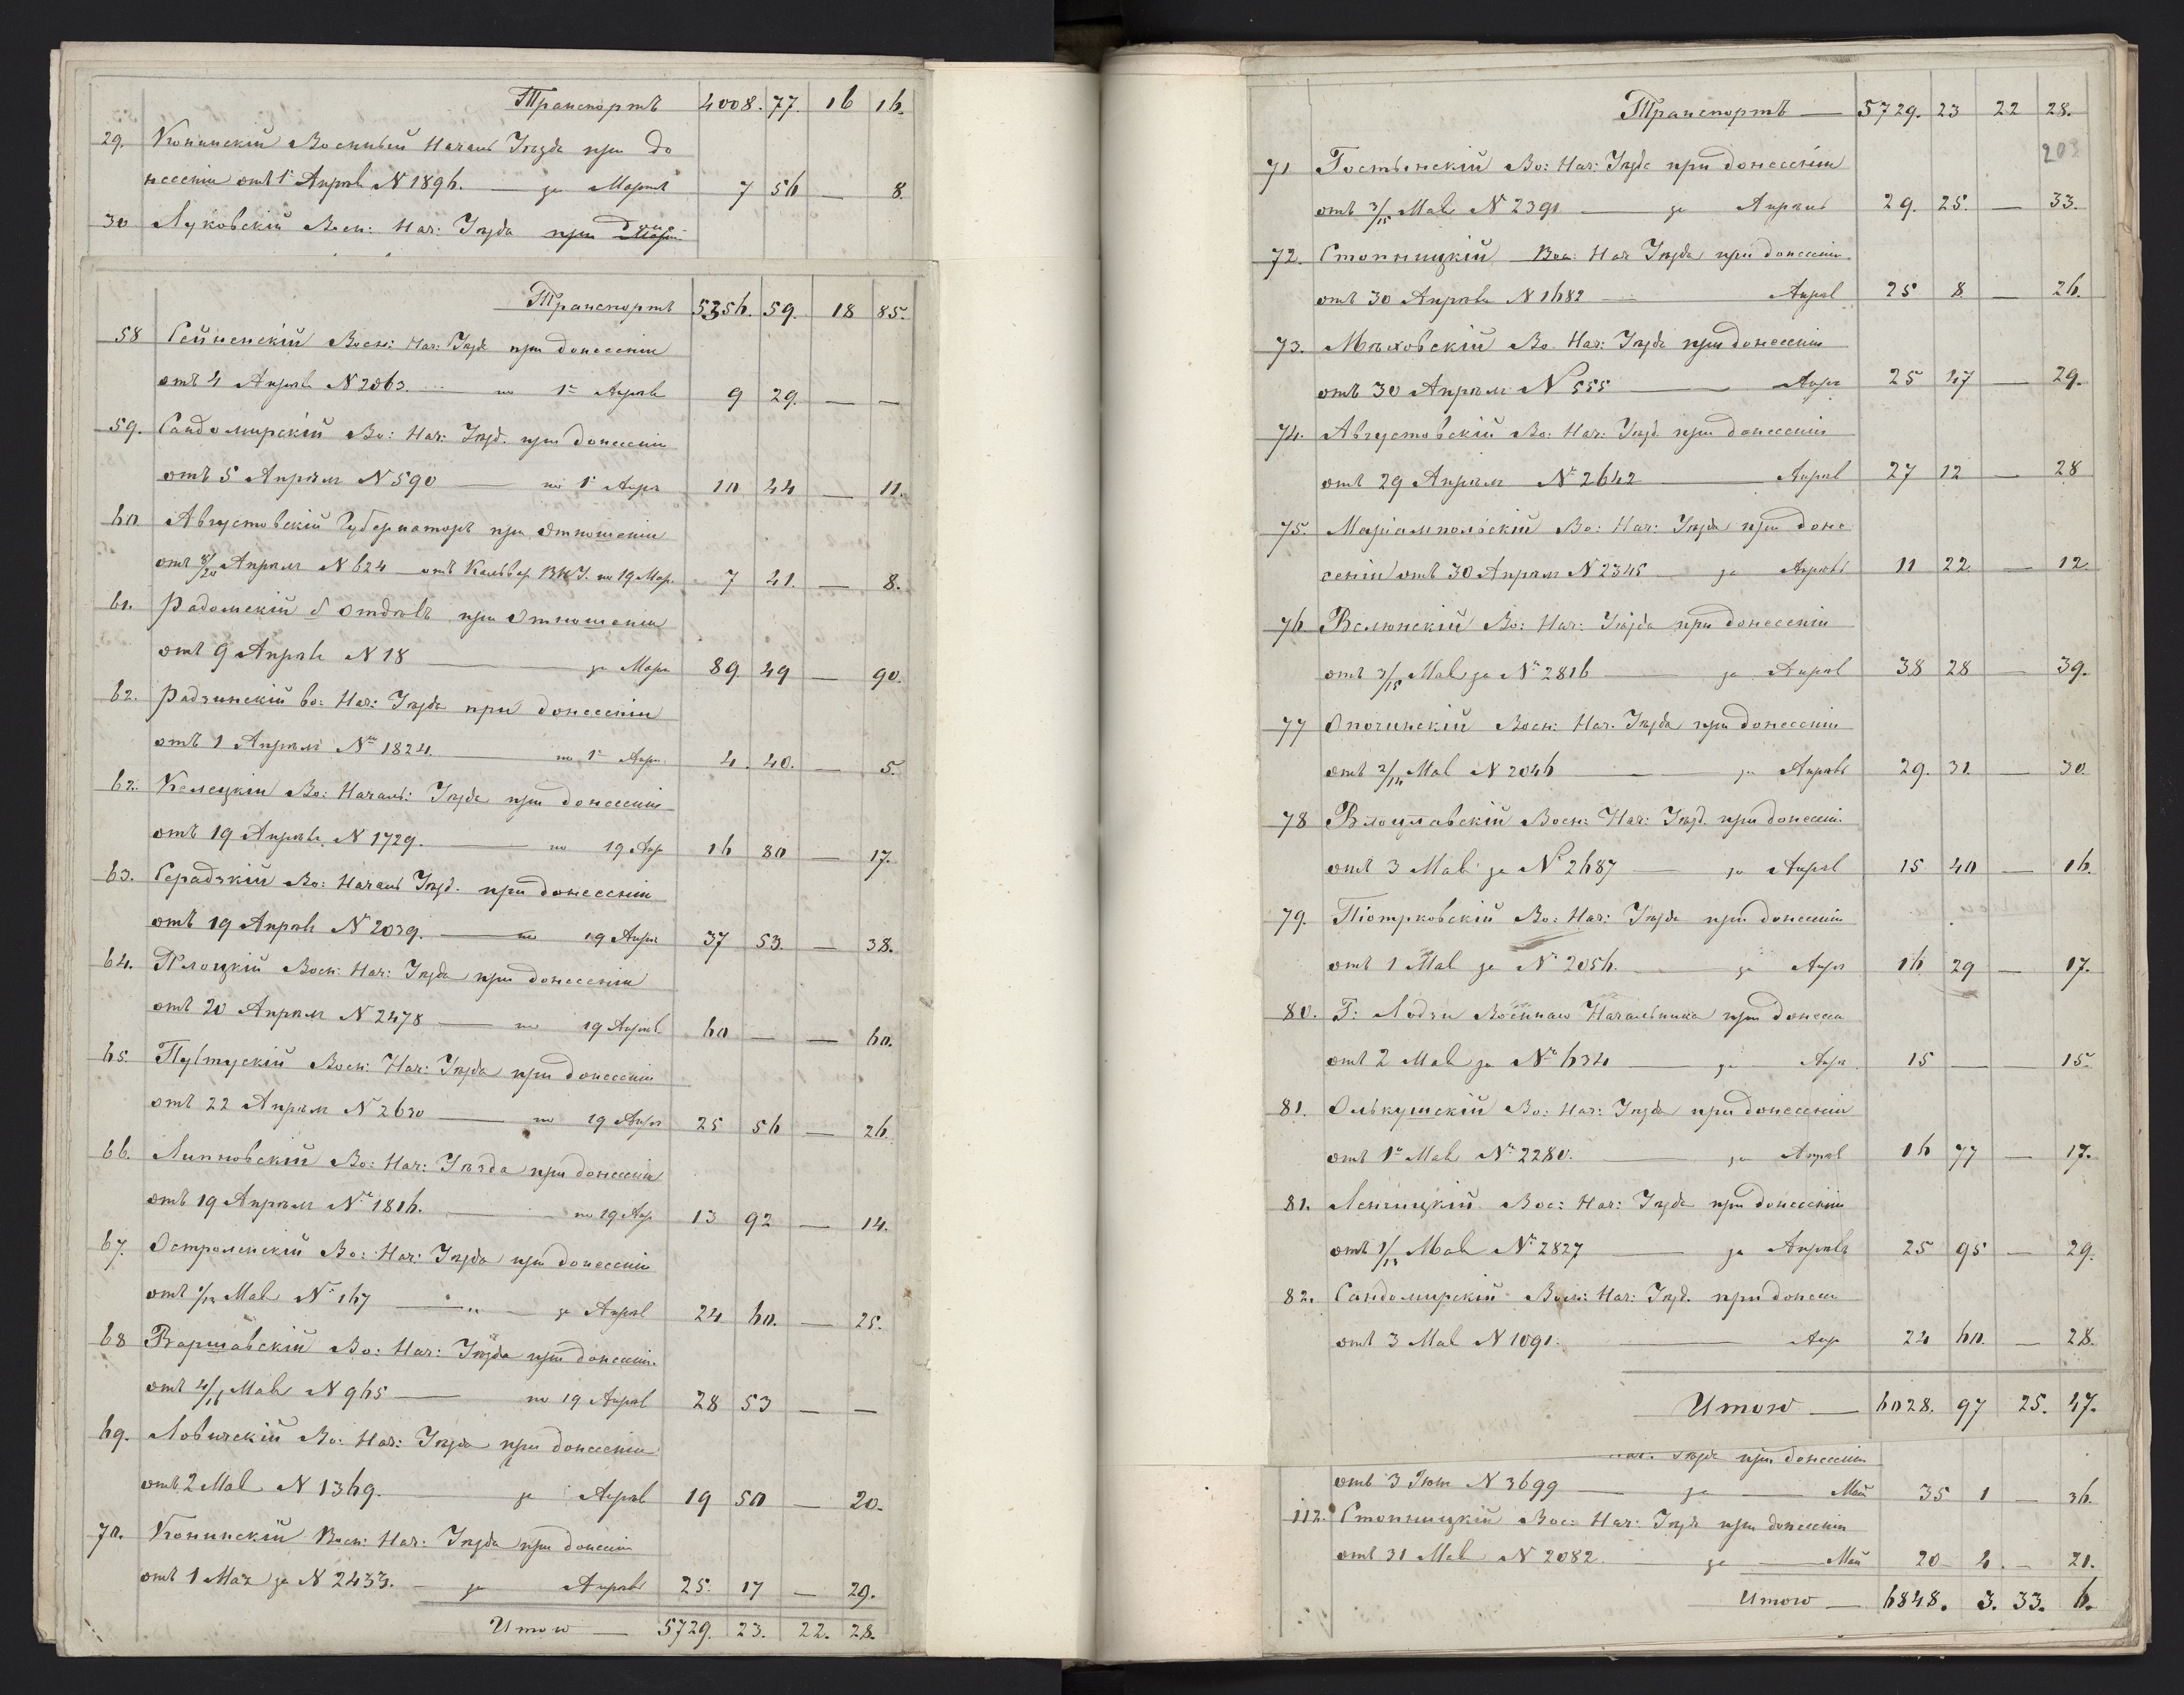 Транспортъ 4008. 77. 16 16.
29. Конинскій Военный Началь Уѣзда при до
несеніи отъ 1го Апрѣля N 1896. — за Мартъ 7 56 — 8.
30 Луковскій Воен: Нач: Уѣзда при
Транспортъ 5356. 59. 18 85.
58 Сейненскій Воен: Нач: Уѣзда при донесеніи
отъ 4 Апрѣля N 2063. — по 1е Апрѣля 9 29. — —
59. Сандомирскій Во: Нач: Уѣзд. при донесеніи
отъ 5 Апрѣля N 590 — по 1е Апрѣ 10 44 — 11.
60 Августовскій Губернаторъ при отношеніи
отъ 8/20 Апрѣля N 624 отъ Кальвар. В.Н.У. по 19 Мар. 7 41. — 8.
61. Радомскій Отдѣлъ при Отношеніи
отъ 9 Апрѣля N 18 — за Мар 89 49 — 90.
62. Радзинскій Во: Нач: Уѣзда при донесеніи
отъ 1 Апрѣля No 1824. — по 1е Апр. 4. 40. — 5.
62. Келецкій Во: Началь: Уѣзда при донесеніи
отъ 19 Апрѣля N 1729. — по 19 Апр 16 80 — 17.
63. Серадзкій Во: Началь Уѣзд. при донесеніи
отъ 19 Апрѣля N 2039. — по 19 Апрѣ 37 53. — 38.
64. Плоцкій Воен: Нач: Уѣзда при донесеніи
отъ 20 Апрѣля N 2478 — по 19 Апрѣл. 60 — — 60.
65. Пултускій Воен: Нач: Уѣзда при донесеніи
отъ 22 Апрѣля N 2630 — по 19 Апрѣ 25 56 — 26.
66. Липновскій Во: Нач: Уѣзда при донесеніи
отъ 19 Апрѣля No 1816. — по 19 Апр 13 92 — 14.
67. Остроленскій Во: Нач: Уѣзда при донесеніи
отъ 1/13 Мая No 167 — за Апрѣл 24 60. — 25.
68 Варшавскій Во: Нач: Уѣзда при донесеніи.
отъ 4/16 Мая N 965 — по 19 Апрѣл 28 53 — —
69. Ловичскій Во: Нач: Уѣзда при донесеніи
отъ 2 Мая N 1369. — за Апрѣл 19 50 — 20.
70. Конинскій Воен: Нач: Уѣзда при донесеніи
отъ 1 Мая за N 2433. — за Апрѣль 25. 17 — 29.
Итого — 5729. 23. 22. 28.
Транспортъ — 5729. 23 22 28.
203
71 Гостынскій Во: Нач: Уѣзда при донесеніи
отъ 3/15 Мая N 2391 — за Апрѣль 29. 25. — 33.
72. Стопницкій Вое: Нач Уѣзда при донесеніи
отъ 30 Апрѣля N 1682 — Апрѣл 25 8 — 26.
73. Мѣховскій Во. Нач: Уѣзда при донесеніи
отъ 30 Апрѣля N 555 — Апрѣ 25 47 — 29.
74. Августовскій Во: Нач: Уѣзд. при донесеніи
отъ 29 Апрѣля No 2642 — Апрѣл 27 12 — 28
75. Маріампольскій Во: Нач: Уѣзда при доне
сеніи отъ 30 Апрѣля N 2345 — за Апрѣль 11 22 — 12
76 Велюнскій Во: Нач: Уѣзда при донесеніи
отъ 3/15 Мая за No 2816 — за Апрѣл 38 28 — 39.
77 Опочинскій Воен: Нач. Уѣзда при донесеніи
отъ 2/14 Мая N 2046 — за Апрѣль 29. 31. — 30.
78 Влоцлавскій Воен: Нач: Уѣзд. при донесені.
отъ 3 Мая за No 2687 — за Апрѣл 15 40 — 16.
79. Піотрковскій Во: Нач: Уѣзда при донесеніи
отъ 1 Мая за No 2056. — за Апрѣ 16 29 — 17.
80. Г: Лодзи Военнаго Начальника при донесе
отъ 2 Мая за No 634 — за Апр 15 — — 15.
81. Олькушскій Во: Нач: Уѣзда при донесеніи
отъ 1го Мая No 2280. — за Апрѣл 16 77 — 17.
81. Ленчицкій Вое: Нач: Уѣзда при донесеніи
отъ 1/13 Мая No 2827 — за Апрѣль 25 95 — 29.
82. Сандомирскій Воен: Нач: Уѣзд. при донесе
отъ 3 Мая N 1091. — Апр 24 60. — 28.
Итого — 6028. 97 25. 47.
Нач. Уѣзда при донесеніи
отъ 3 Іюн N 3699 — за — Май 35 1 — 36.
112. Стопницкій Вое: Нач: Уѣзд при донесеніи
отъ 31 Мая N 2082 за — Май 20 4. — 21.
Итого — 6848. 3. 33. 6.